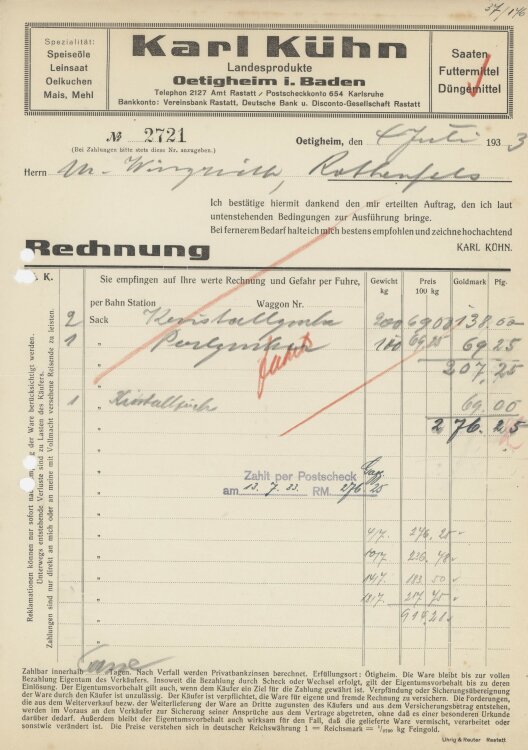 57/176
Spezialität:
Speiseöle
Leinsaat
Oelkuchen
Mais, Mehl
Karl Kühn
Landesprodukte
Oetigheim i. Baden
Telephon 2127 Amt Rastatt / Postscheckkonto 654 Karlsruhe
Bankkonto: Vereinsbank Rastatt, Deutsche Bank u. Disconto-Gesellschaft Rastatt
Saaten
Futtermittel
Düngemittel
№ 2721
(Bei Zahlungen bitte stets diese Nr. anzugeben.)
Oetigheim, den 4 Juli 1933
Herrn M. Rothenfels
Ich bestätige hiermit dankend den mir erteilten Auftrag, den ich laut
untenstehenden Bedingungen zur Ausführung bringe.
Bei fernerem Bedarf halte ich mich bestens empfohlen und zeichne hochachtend
KARL KÜHN.
Rechnung
K.
Sie empfingen auf Ihre werte Rechnung und Gefahr per Fuhre,
per Bahn Station Waggon Nr.
Gewicht kg
Preis 100 kg
Goldmark
Pfg.
2 Sack 200 69,00 138.00
1 " 100 69,25 69 25
207,25
1 " 69.00
276.25
Zahlt per Postscheck
am 13. 7. 33. RM. 276.25
4/7. 276.25
10/7 236.78
14/7 183.50
18/7. 217.75
Reklamationen können nur sofort der Ware berücksichtigt werden.
Unterwegs entstehende Verluste sind zu Lasten des Käufers.
Zahlungen sind nur direkt an mich oder an meine mit Vollmacht versehene Reisende zu leisten.
Zahlbar innerhalb Tagen. Nach Verfall werden Privatbankzinsen berechnet. Erfüllungsort: Ötigheim. Die Ware bleibt bis zur vollen
Bezahlung Eigentum des Verkäufers. Insoweit die Bezahlung durch Scheck oder Wechsel erfolgt, gilt der Eigentumsvorbehalt bis zu deren
Einlösung. Der Eigentumsvorbehalt gilt auch, wenn dem Käufer ein Ziel für die Zahlung gewährt ist. Verpfändung oder Sicherungsübereignung
der Ware durch den Käufer ist unzulässig. Der Käufer ist verpflichtet, die Ware für eigene und fremde Rechnung zu versichern. Die Forderungen,
die aus dem Weiterverkauf bezw. der Weiterlieferung der Ware an Dritte zugunsten des Käufers und aus dem Versicherungsanspruch entstehen,
werden im Voraus an den Verkäufer zur Sicherung seiner Ansprüche aus dem Vertrage abgetreten, ohne daß es einer besonderen Urkunde
darüber bedarf. Außerdem bleibt der Eigentumsvorbehalt auch wirksam für den Fall, daß die gelieferte Ware vermischt, verarbeitet oder
sonstwie verändert ist. Die Preise verstehen sich in deutscher Reichswährung 1 = Reichsmark = 1/2790 kg Feingold.
Uhrig & Reuter Rastatt.